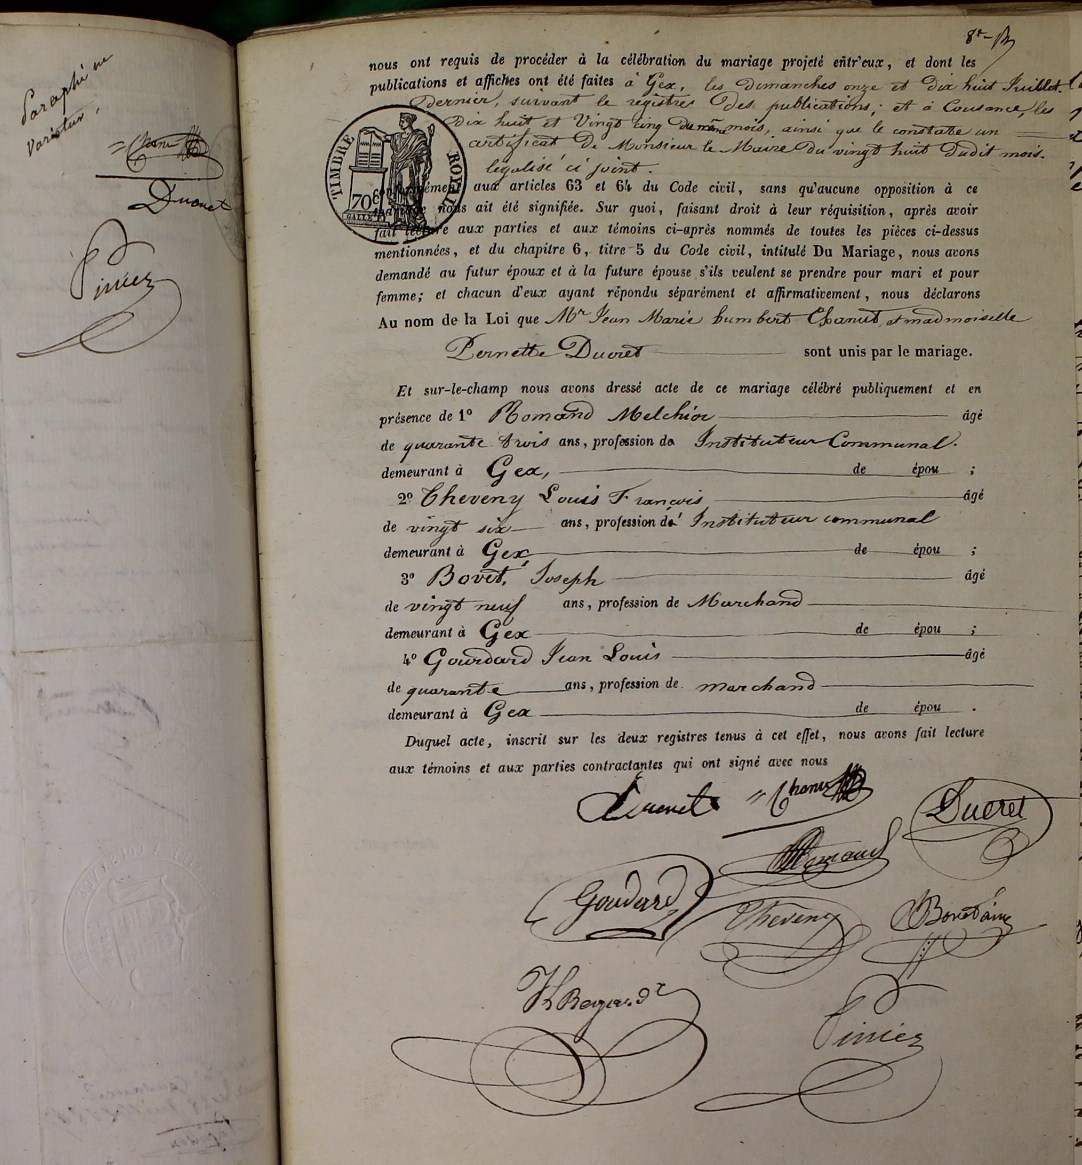 Paraphé ne
Varietur
Chanut
Ducret
8t
nous ont requis de procéder à la célébration du mariage projeté entr'eux, et dont les
publications et affiches ont été faites à Gex, les dimanches onze et dix huit Juillet
dernier, suivant le registres des publications; et à Cousance, les
Dix huit et Vingt cinq du même mois, ainsi que le constate un
certificat de Monsieur le Maire du vingt huit dudit mois.
légalisé ci joint.
TIMBRE ROYAL
70c
conformément aux articles 63 et 64 du Code civil, sans qu'aucune opposition à ce
mariage nous ait été signifiée. Sur quoi, faisant droit à leur réquisition, après avoir
fait lecture aux parties et aux témoins ci-après nommés de toutes les pièces ci-dessus
mentionnées, et du chapitre 6, titre 5 du Code civil, intitulé Du Mariage, nous avons
demandé au futur époux et à la future épouse s'ils veulent se prendre pour mari et pour
femme; et chacun d'eux ayant répondu séparément et affirmativement, nous déclarons
Au nom de la Loi que Mr Jean Marie humbert Chanut, et madmoiselle
Pernette Ducret sont unis par le mariage.
Et sur-le-champ nous avons dressé acte de ce mariage célébré publiquement et en
présence de 1° Romand Melchior âgé
de quarante trois ans, profession de Instituteur Communal.
demeurant à Gex, de épou ;
2° Theveny Louis François âgé
de vingt six ans, profession de Instituteur communal
demeurant à Gex de épou ;
3° Bovet, Joseph âgé
de vingt neuf ans, profession de Marchand
demeurant à Gex de épou ;
4° Gourdard Jean Louis âgé
de quarante ans, profession de marchand
demeurant à Gex de épou .
Duquel acte, inscrit sur les deux registres tenus à cet effet, nous avons fait lecture
aux témoins et aux parties contractantes qui ont signé avec nous
Ducret Chanut Ducret
Romand
Goudard Theveny Bovet aîné